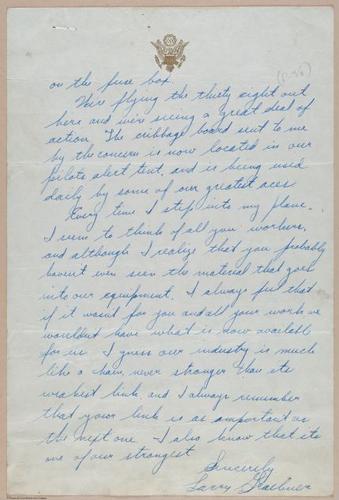 on the fuse box.
(P-38)
We're flying the thirty eight out
here and we're seeing a great deal of
action. The cribbage board sent to me
by the concern is now located in our
pilots alert tent, and is being used
daily by some of our greatest aces
Every time I step into my plane.
I seem to think of all you workers,
and although I realize that you probably
haven't even seen the material that goes
into our equipment. I always feel that
if it wasn't for you and all your work we
wouldn't have what is now available
for us. I guess our industry is much
like a chain, never stronger than its
weakest link, and I always remember
that your link is as important as
the next one. I also know that its
one of our strongest
Sincerely
Larry